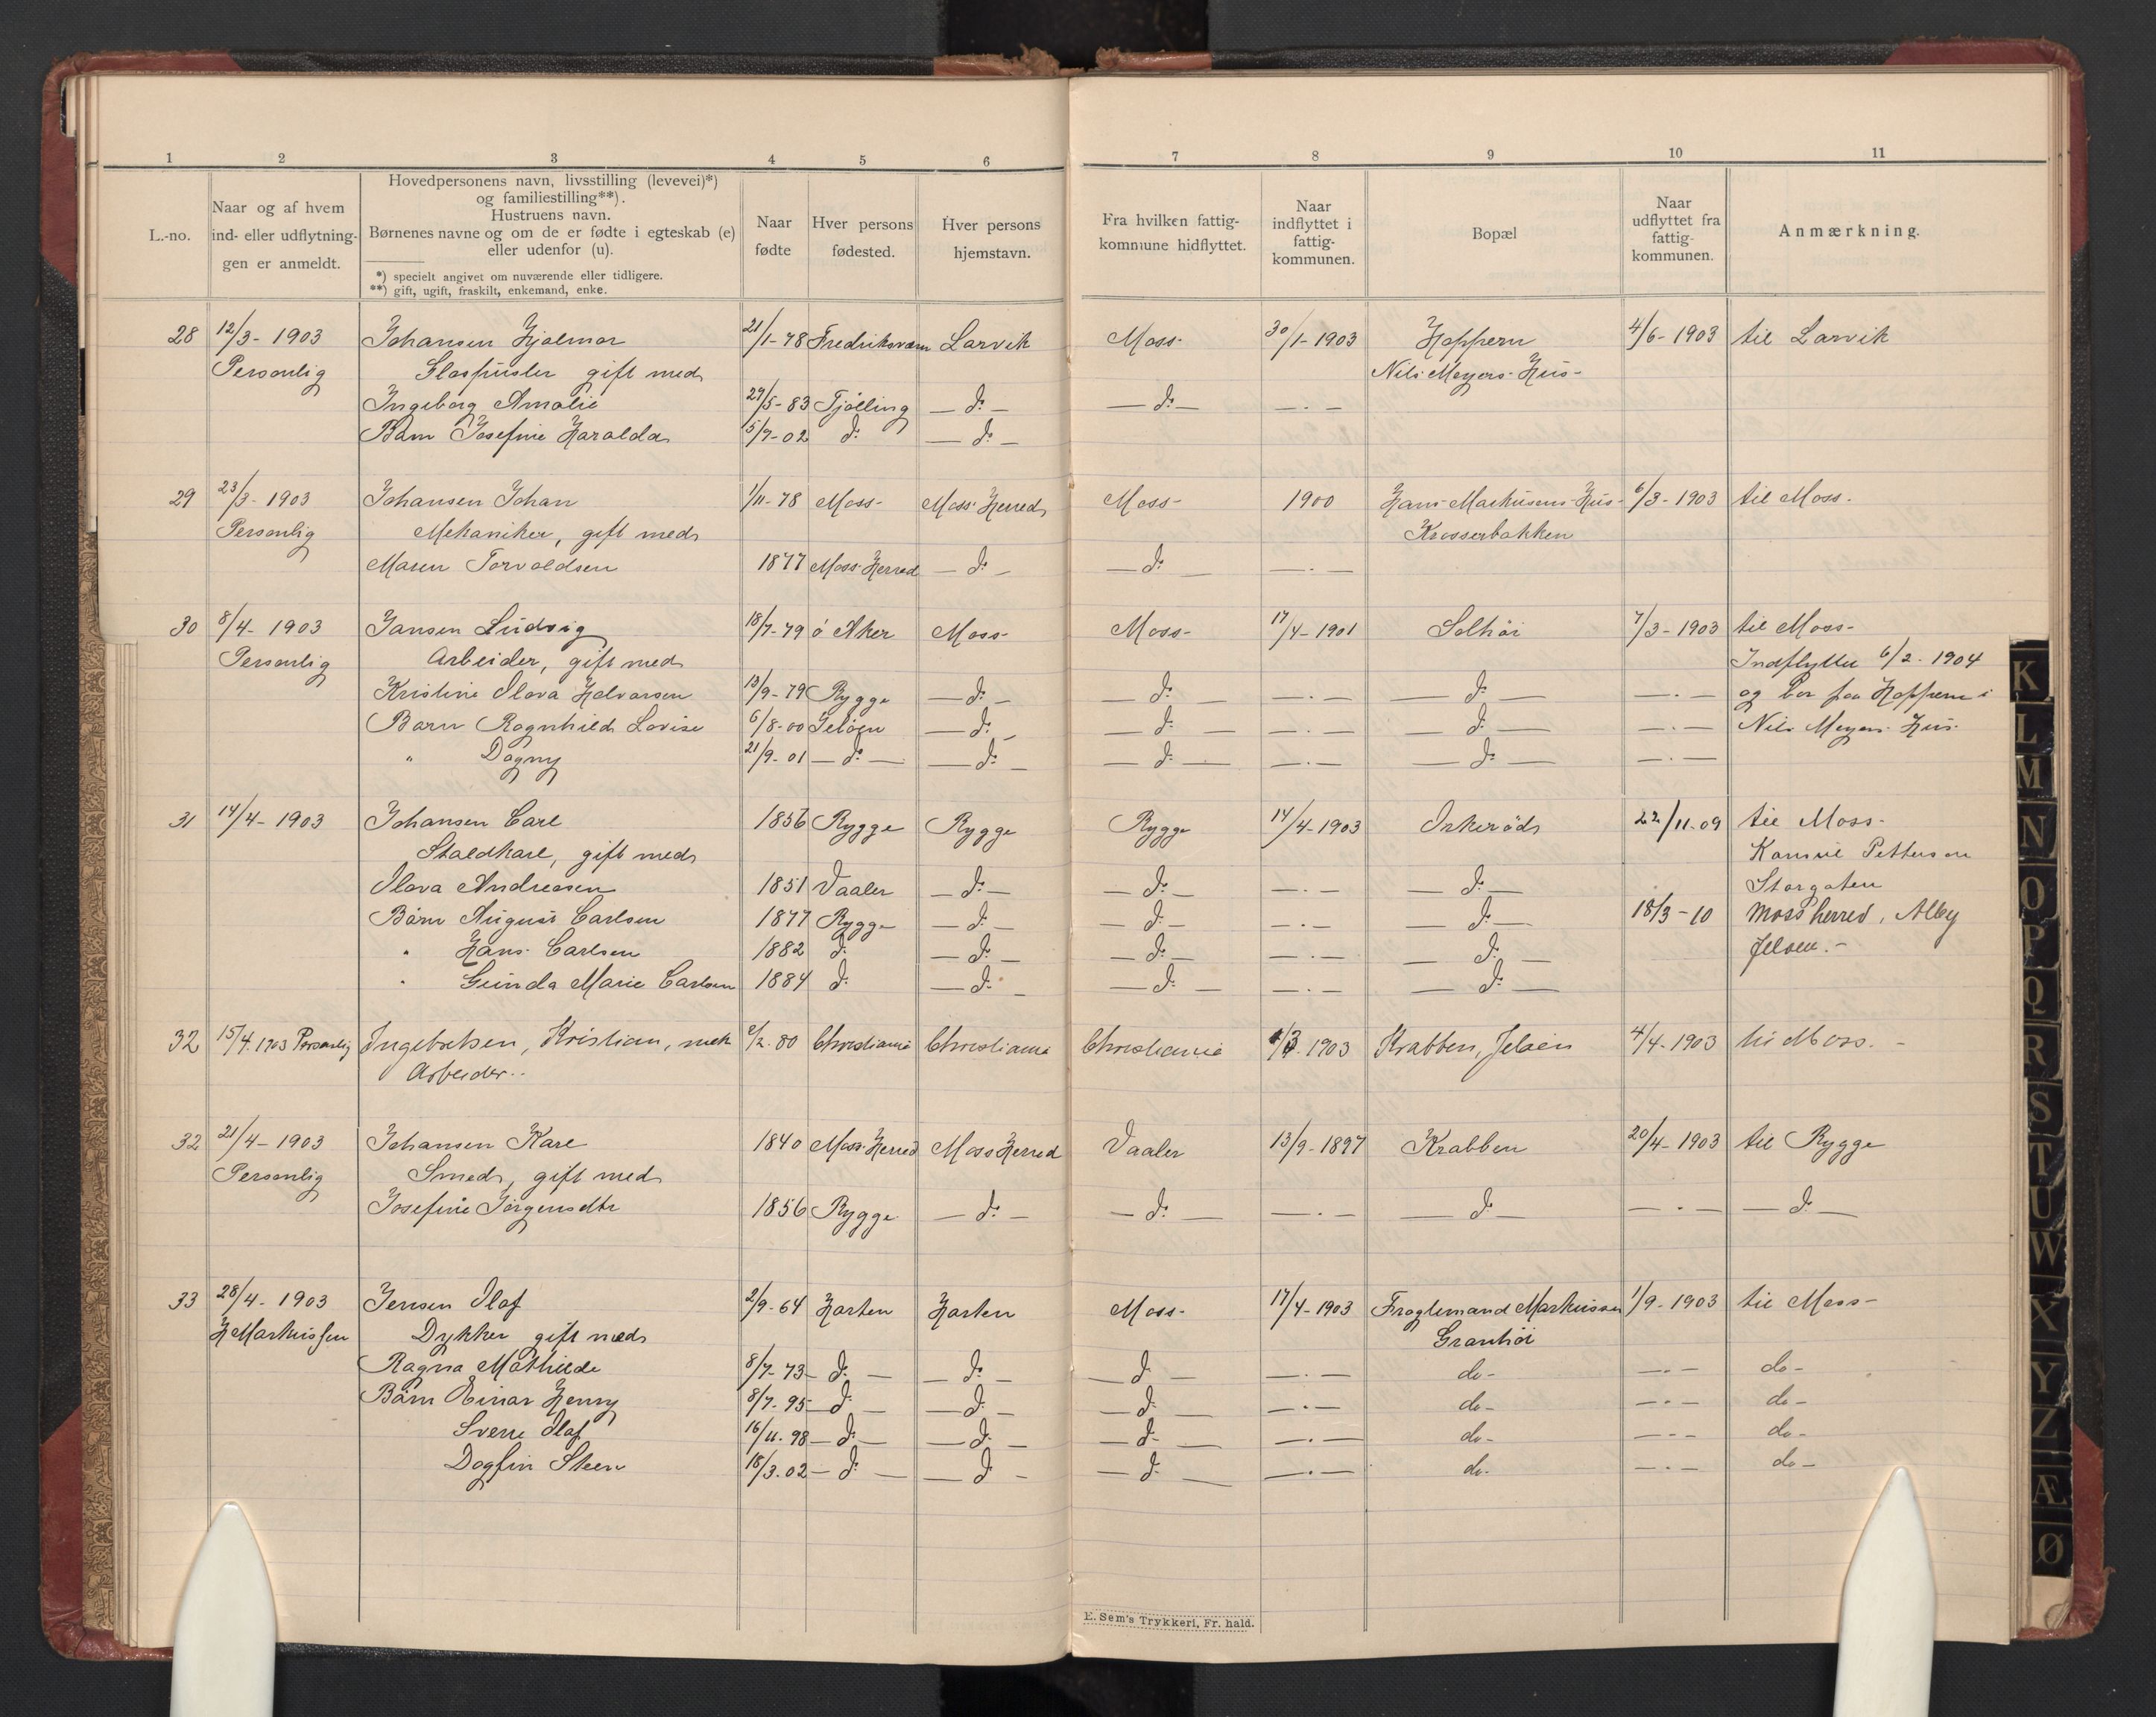 1 2 3 4 5 6 7 8 9 10 11
L.-no.
Naar og af hvem
ind- eller udflytnin-
gen er anmeldt.
Hovedpersonens navn, livsstilling (levevei)*)
og familiestilling**).
Hustruens navn.
Børnenes navne og om de er fødte i egteskab (e)
eller udenfor (u).
*) specielt angivet om nuværende eller tidligere.
**) gift, ugift, fraskilt, enkemand, enke.
Naar
fødte
Hver persons
fødested.
Hver persons
hjemstavn.
Fra hvilken fattig-
kommune hidflyttet.
Naar
indflyttet i
fattig-
kommunen.
Bopæl
Naar
udflyttet fra
fattig-
kommunen.
Anmærkning.
28 12/3- 1903 Johansen Hjalmar 21/1-78 Fredriksværn Larvik Moss- 30/1-1903 Hoppern 4/6-1903 til Larvik
Personlig Glaspusler gift med Nils Meyers Hus-
Ingeborg Amalie 29/5-83 Tjølling — do — — do — — . —
Barn Josefine Haralda 5/7-02 do — do —
29 23/3- 1903 Johansen Johan 1/11-78 Moss- Moss Herred Moss- 1900 Hans Markusens Hus- 6/3-1903 til Moss.
Personlig Mekaniker, gift med Krosserbakken
Maren Torvaldsen 1877 Moss Herred — do — — do — — . —
30 8/4- 1903 Jansen Ludvig 18/7-79 ø Aker Moss- Moss- 17/4-1901 Solhöi 7/3-1903 til Moss-
Personlig Arbeider, gift med Indflyttet 6/2-1904
Kristine Olava Halvorsen 13/9-79 Rygge — do — — do — — . — — do — — . — og bor paa Hoppern i
Barn Ragnhild Lovise 6/8-00 Jeløen — do — — do — — . — — do — — . — Nils Meyers Hus-
" Dagny 21/9-01 — do — — do — — do — — . — — do — — . —
31 14/4- 1903 Johansen Carl 1856 Rygge Rygge Rygge 14/4-1903 Orkeröd 22/11-09 til Moss-
Staldkarl, gift med Petterson
Olava Andreasen 1851 Vaaler — do — — do — — . — — do — Storgaten
Börn August Carlsen 1877 Rygge — do — — do — — . — — do — 18/3-10 Moss herred, Alby
" Hans Carlsen 1882 do — do — — do — — . — — do — Jeløen.-
" Gunda Marie Carlsen 1884 do — do — — do — — . — — do —
32 15/4.1903 Personlig Ingebretsen, Kristian, mek 2/2-80 Christiania Christiania Christiania 1/3.1903 Krabben, Jeløen 4/4-1903 til Moss.-
Arbeider..
32 21/4- 1903 Johansen Karl 1840 Moss Herred Moss Herred Vaaler 13/9-1897 Krabben 20/4-1903 til Rygge
Personlig Smed, gift med
Josefine Jörgensdtr 1856 Rygge — do — — do — — . — — do — — . — — do —
33 28/4- 1903 Jensen Olaf 2/9-64 Horten Horten Moss- 17/4-1903 Fragtemand Markussen 1/9-1903 til Moss-
H Markussen Dykker gift med Granhöi
Ragna Mathilde 8/7-73 — do — — do — — do — — . — do- — . — do-
Börn Einar Henry 8/7-95 — do — — do — — do — — . — do- — . — do-
Sverre Olaf 16/11-98 — do — — do — — do — — . — do- — . — do-
Dagfin Steen 18/3.02 — do — — do — — do — — . — do- — . — do-
E. Sem's Trykkeri, Fr. hald.
K
L
M
N
O
P
Q
R
S
T
U
W
X
Y
Z
Æ
Ø